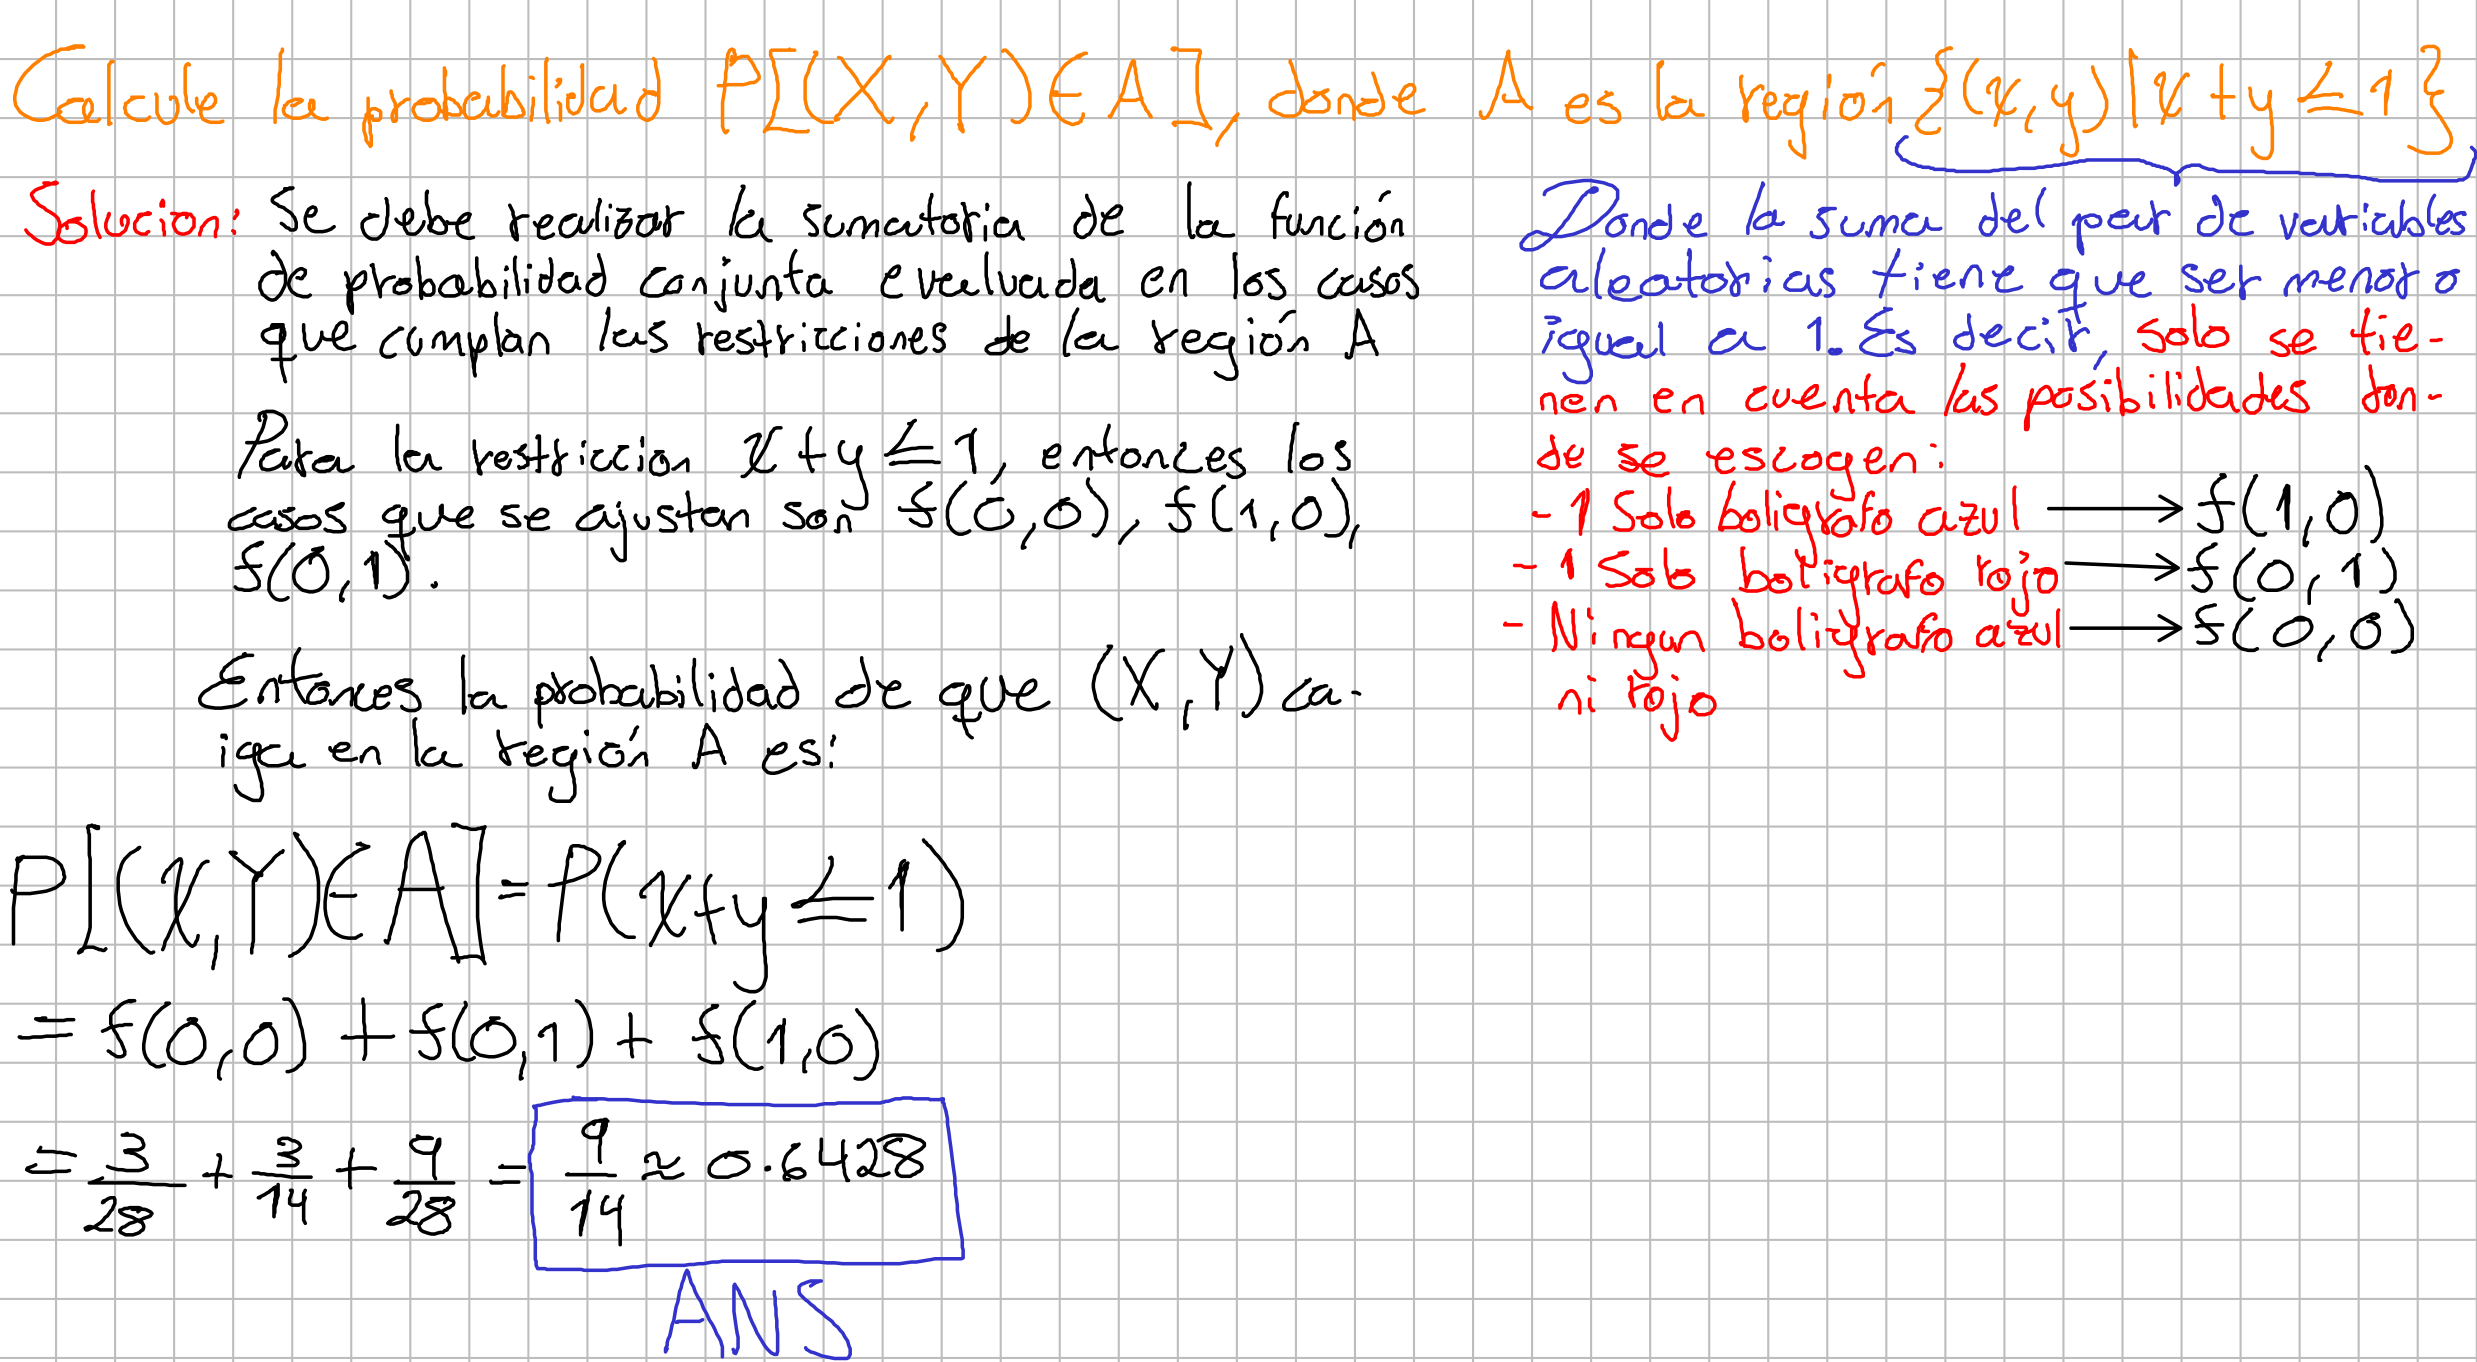 Calcule la probabilidad P[(X,Y)∈A], donde A es la región {(x,y)|x+y≤1}
Solucion: Se debe realizar la sumatoria de la función
de probabilidad conjunta evaluada en los casos
que cumplan las restricciones de la región A
Para la restriccion x+y≤1, entonces los
casos que se ajustan son f(0,0), f(1,0),
f(0,1).
Entonces la probabilidad de que (X,Y) ca-
iga en la región A es:
P[(X,Y)∈A]=P(x+y≤1)
= f(0,0) + f(0,1) + f(1,0)
= 3/28 + 3/14 + 9/28 = 9/14 ≈ 0.6428
ANS
Donde la suma del par de variables
aleatorias tiene que ser menor o
igual a 1. Es decir, solo se tie-
nen en cuenta las posibilidades don-
de se escogen:
- 1 Solo boligrafo azul → f(1,0)
- 1 Solo boligrafo rojo → f(0,1)
- Ningun boligrafo azul → f(0,0)
ni rojo